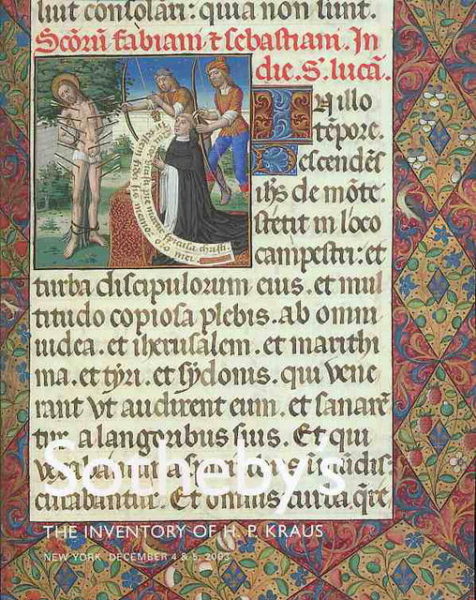 luit consolari: quia non sunt.
Scõrũ fabiani ⁊ sebastiani. In
die. S. lucã.
In illo
tẽpore.
Descendẽs
ihs de mõte.
stetit in loco
campestri: et
turba discipulorum eius. et mul
titudo copiosa plebis. ab omni
iudea. et iherusalem. et marithi
ma. et tyri. et sydonis. qui vene
rant vt audirent eum. et sanarẽ
tur a langoribus suis. Et qui
vexabantur a spiritibus ĩmũdis:
curabantur. Et omnis turba q̃re
Sotheby's
THE INVENTORY OF H. P. KRAUS
NEW YORK DECEMBER 4 & 5, 2003